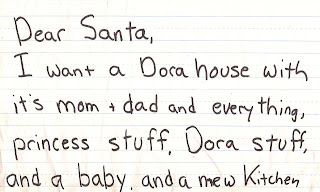 Dear Santa,
I want a Dora house with
it's mom + dad and everything,
princess stuff, Dora stuff,
and a baby, and a mew Kitchen